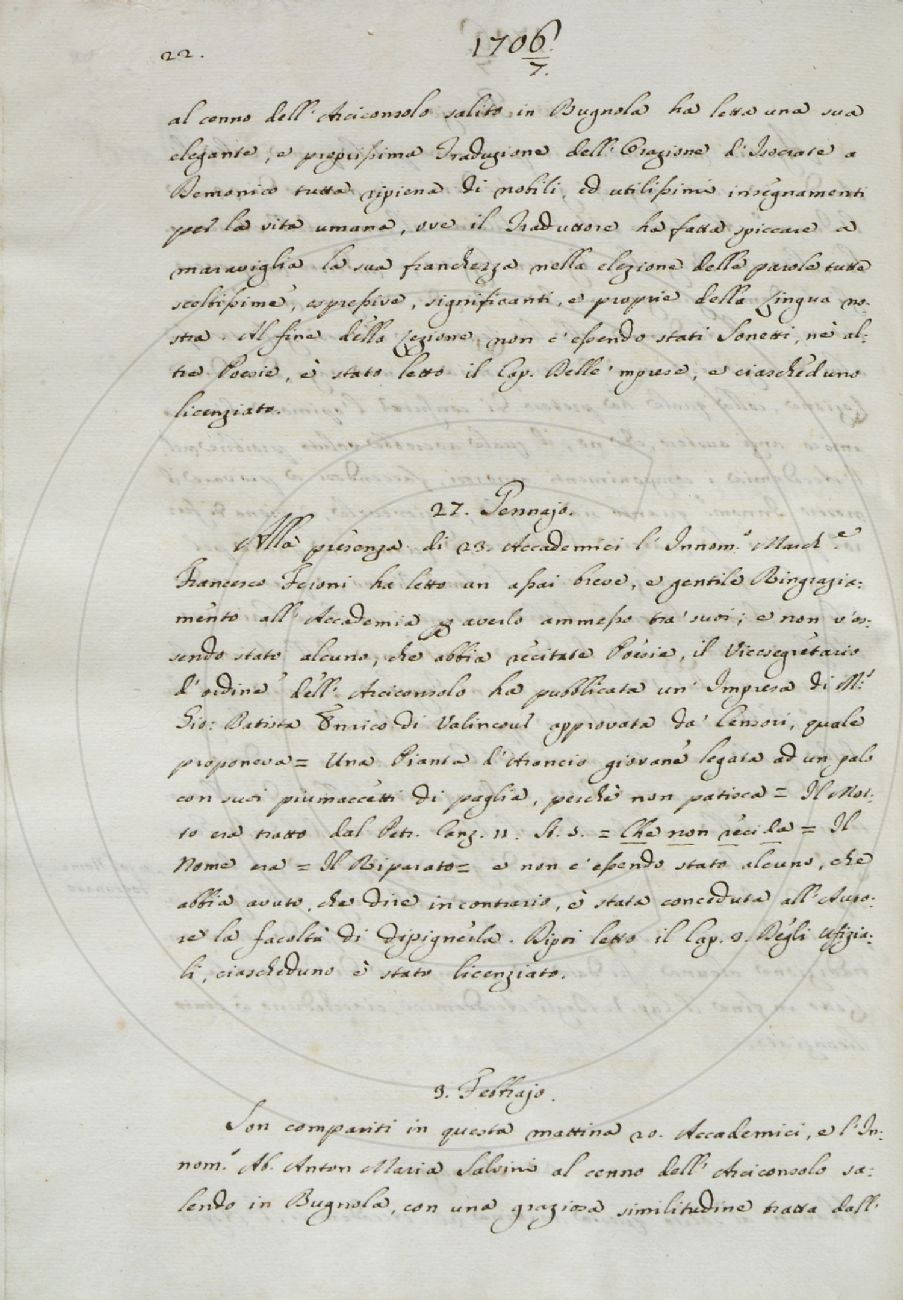 22.
1706/7.
al cenno dell' Arciconsolo salito in Bugnola ha letta una sua
elegante, e propriissima Traduzione dell' Orazione d'Isocrate a
Demonico tutta ripiena di nobili, ed utilissimi insegnamenti
per la vita umana, ove il Traduttore ha fatta spiccare a
maraviglia la sua franchezza nella elezione delle parole tutte
sceltissime, espressive, significanti, e proprie della Lingua no-
stra. Al fine della Lezione, non c'essendo stati Sonetti, nè al-
tre Poesie, è stato letto il Cap. Delle 'mprese, e ciascheduno
licenziato.
27. Gennajo.
Alla presenza di 23. Accademici l'Innom.º March.e
Francesco Feroni ha letto un assai breve, e gentile Ringrazia-
mento all' Accademia per averlo ammesso tra' suoi; e non v'es-
sendo stato alcuno, che abbia recitate Poesie, il Vicesegretario
d'ordine dell' Arciconsolo ha pubblicata un' Impresa di M.r
Gio: Batista Enrico di Valincour approvata da' Censori, quale
proponeva = Una Pianta d'Arancio giovane legata ad un palo
con suoi piumaccetti di paglia, perchè non patisca = Il Mot-
to era tratto dal Petr. Canz. 11. St. 3. = Che non recida = Il
Nome era = Il Riparato = e non c'essendo stato alcuno, che
abbia avuto, che dire in contrario, è stata conceduta all' Auto-
re la facoltà di dipignerla. Dipoi letto il Cap. 3. Degli Ufizia-
li, ciascheduno è stato licenziato.
3. Febbrajo.
Son compariti in questa mattina 20. Accademici, e l'In-
nom.º Ab. Anton Maria Salvini al cenno dell' Arciconsolo sa-
lendo in Bugnola, con una graziosa similitudine tratta dall'